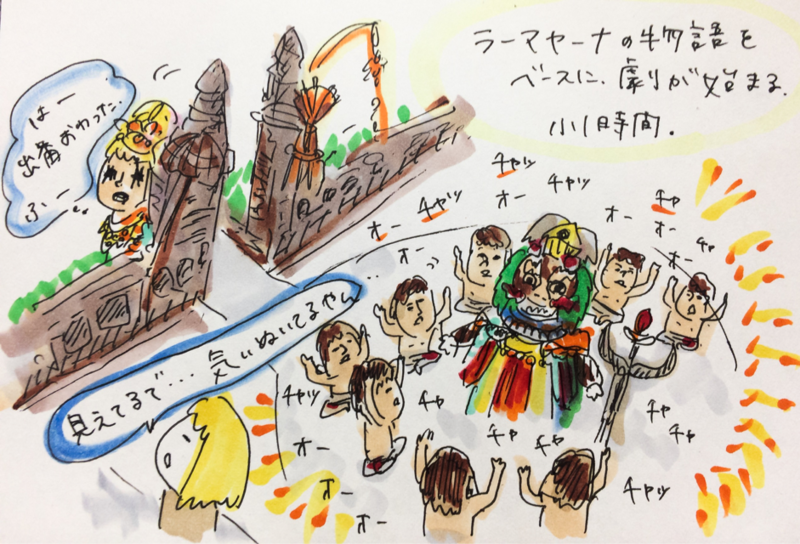 ラーマヤーナの物語を
ベースに、劇が始まる。
小1時間。
はー
出番おわった。
ふー
見えてるで… 気いぬいてるやん…
チャッ
オー
チャッ
チャッ
オー
オー
オー
チャ
オー
オー
チャ
チャッ
オー
オー
オー
チャ
チャ
チャ
チャ
チャ
チャッ